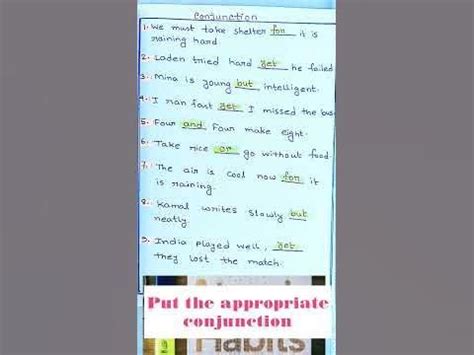 Conjunction
1. We must take shelter for it is
raining hard.
2. Laden tried hard yet he failed
3. Mina is young but intelligent.
4. I ran fast yet I missed the bus
5. Four and Four make eight.
6. Take rice or go without food.
7. The air is cool now for it
is raining.
8. Kamal writes slowly but
neatly.
9. India played well, yet
they lost the match.
Put the appropriate
conjunction
Habits